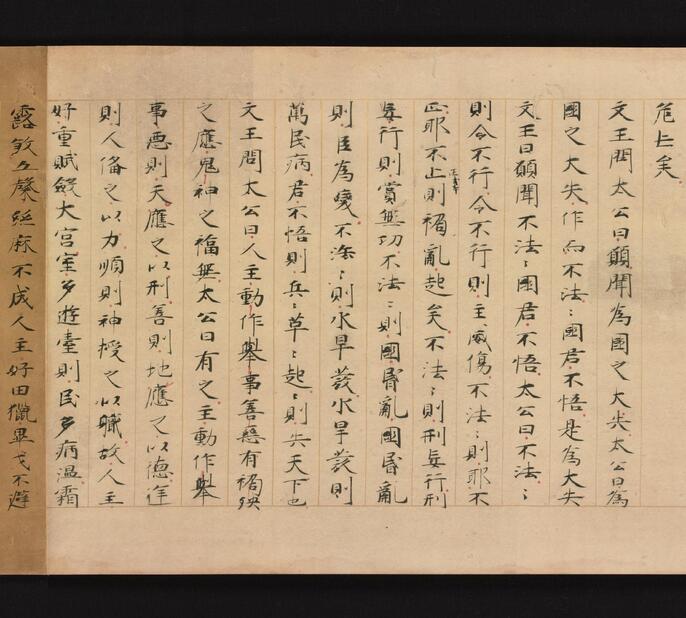 危亡矣
文王問太公曰願聞為國之大失太公曰為
國之大失作而不法〻國君不悟是為大失
文王曰願聞不法〻國君不悟太公曰不法〻
則令不行令不行則主威傷不法〻則耶不
正耶不止則禍亂起矣不法〻則刑妄行刑
妄行則賞無功不法〻則國昏亂國昏亂
則臣為變不法〻則水旱發水旱發則
萬民病君不悟則兵〻革〻起〻則失天下也
文王問太公曰人主動作舉事善惡有禍殃
之應鬼神之福無太公曰有之主動作舉
事惡則天應之以刑善則地應之以德逆
則人備之以力順則神授之以職故人主
好重賦斂大宮室多遊臺則民多病温霜
露煞五穀絲麻不成人主好田獵畢弋不避